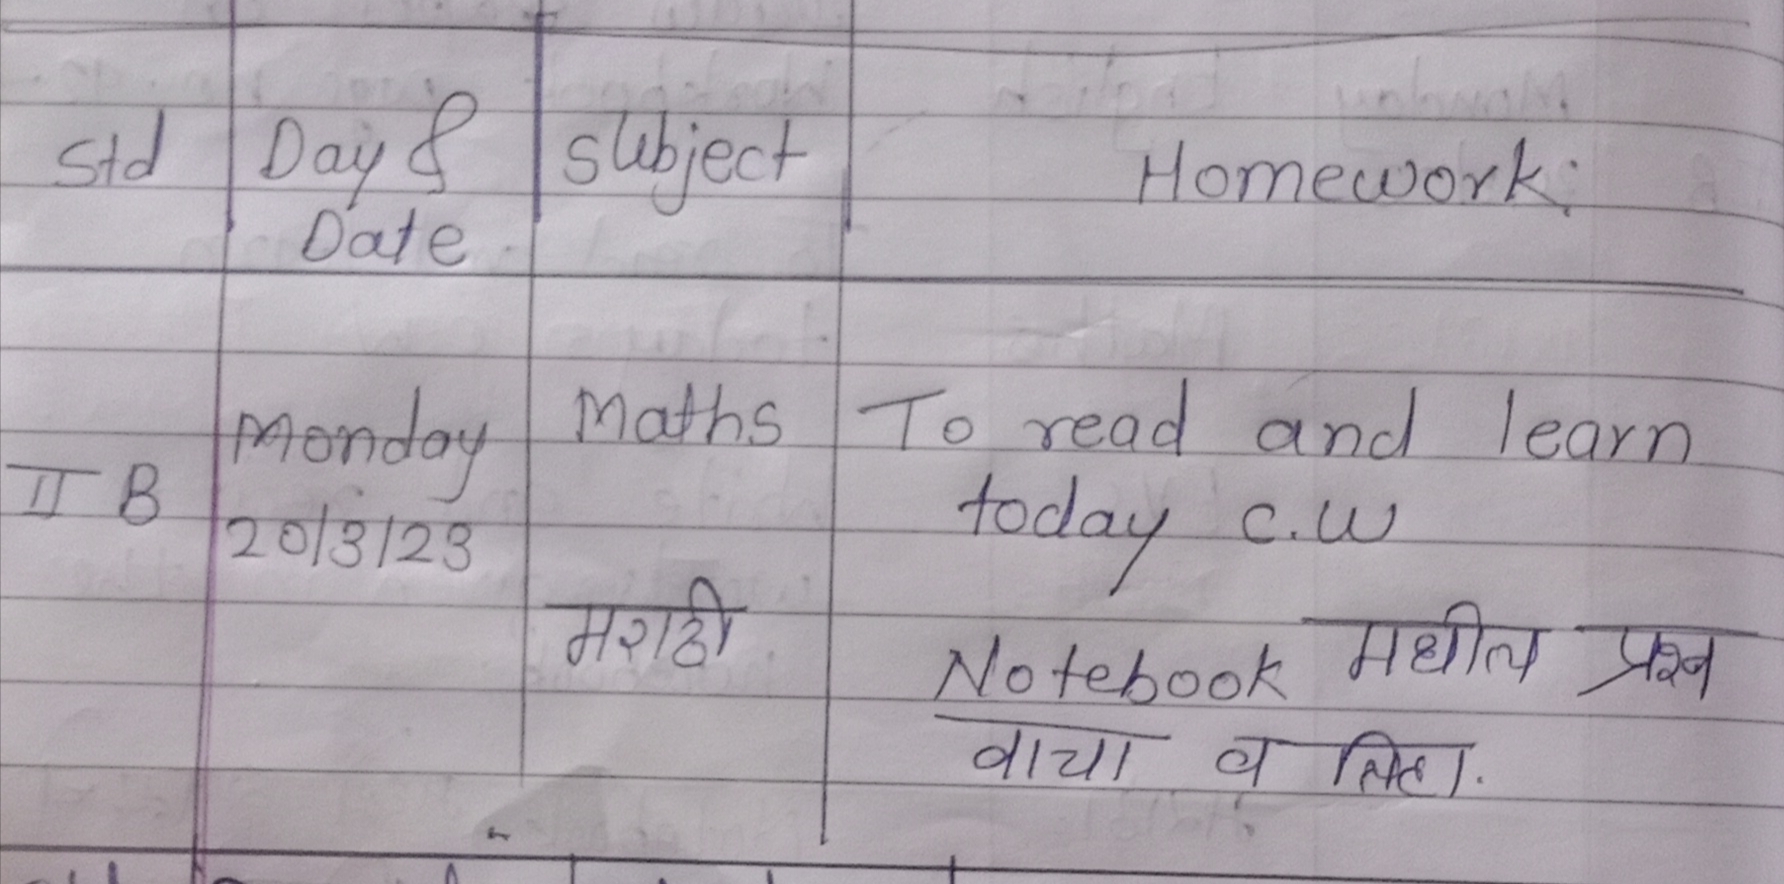 Std Day & Subject Homework:
Date
Monday Maths To read and learn
II B 20/3/23 today c.w
मराठी Notebook मधील प्रश्न
वाचा व लिहा.